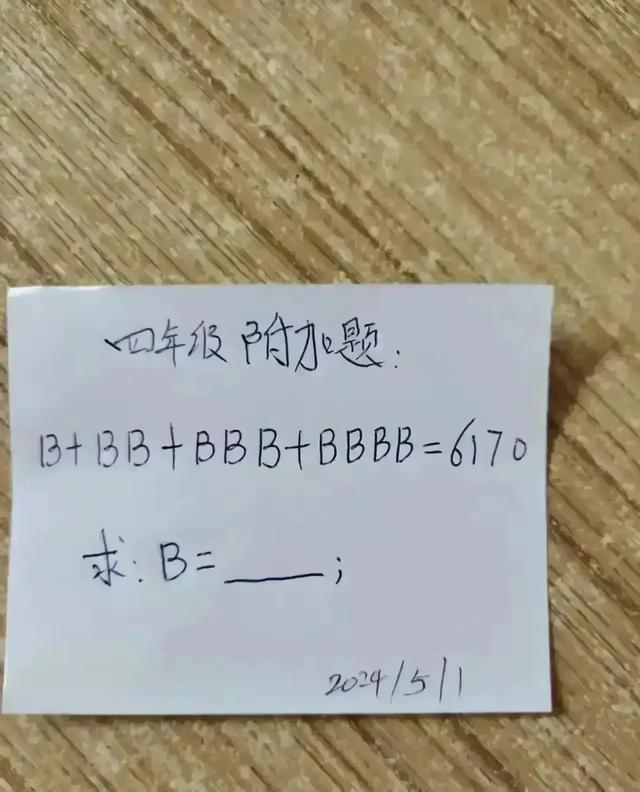 四年级 附加题:
B+BB+BBB+BBBB=6170
求: B=____;
2024/5/1